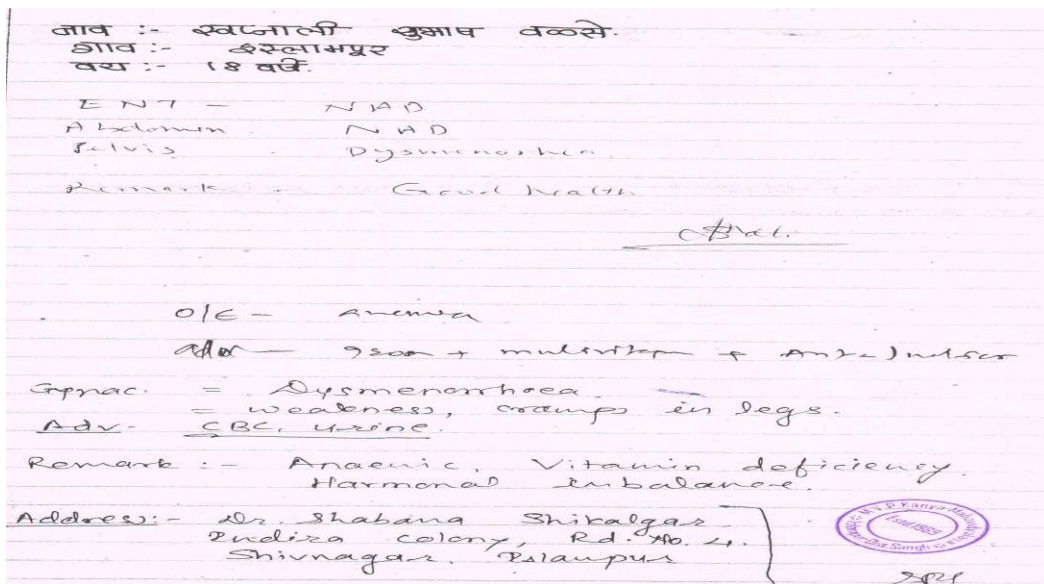 नाव :- स्वप्नाली सुभाष वळसे.
गाव :- इस्लामपूर
वय :- 18 वर्षे.
ENT - NAD
Abdomen - NAD
Pelvis - Dysmenorrhea
Remark - Good health
O/E - Anemia
Adv - Iron + multivitamin +
Gynac. = Dysmenorrhoea
= weakness, cramps in legs.
Adv - CBC, urine.
Remark :- Anaemic, Vitamin deficiency.
Harmonal inbalance.
Address:- Dr. Shabana Shikalgar
Indira colony, Rd. No. 4.
Shivnagar, Islampur